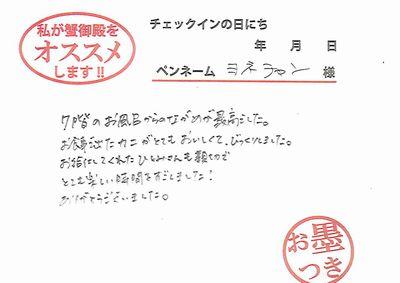 私が蟹御殿を
オススメ
します!!
チェックインの日にち
年 月 日
ペンネーム ヨネチャン 様
7階のお風呂からのながめが最高でした。
お食事に出たカニがとてもおいしくて、びっくりしました。
お給仕してくれたひとみさんも親切で
とても楽しい時間をすごしました!
ありがとうございました。
お墨
つき